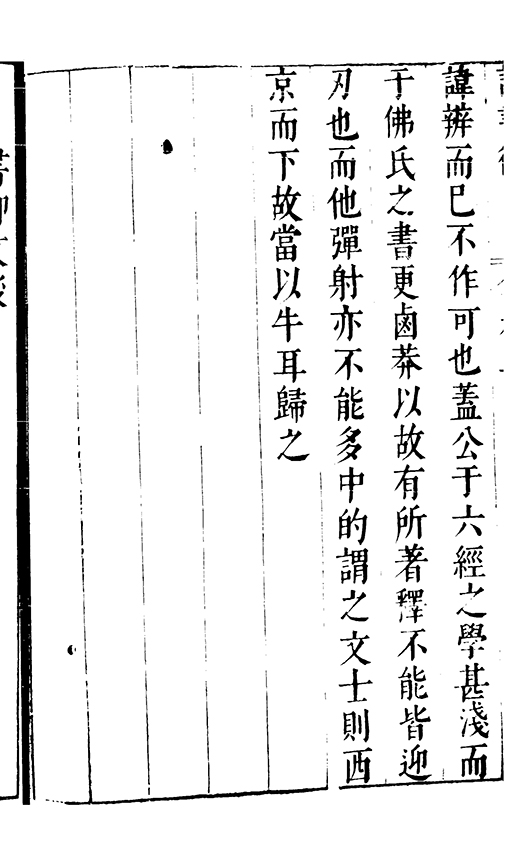 諱辨而已不作可也蓋公于六經之學甚淺而
于佛氏之書更鹵莽以故有所著釋不能皆迎
刃也而他彈射亦不能多中的謂之文士則西
京而下故當以牛耳歸之